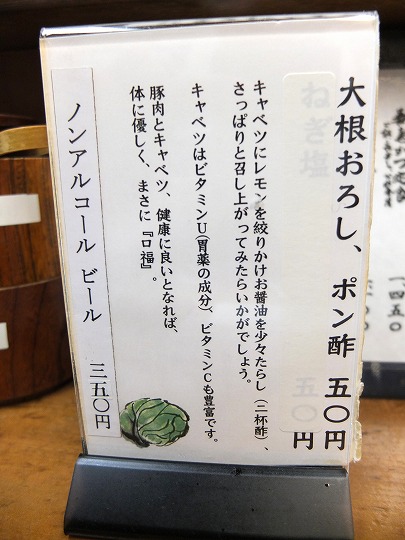 大根おろし、ポン酢 五〇円
ねぎ塩 五〇円
キャベツにレモンを絞りかけお醤油を少々たらし(二杯酢)、
さっぱりと召し上がってみたらいかがでしょう。
キャベツはビタミンU(胃薬の成分)、ビタミンCも豊富です。
豚肉とキャベツ、健康に良いとなれば、
体に優しく、まさに『口福』。
ノンアルコール ビール 三五〇円